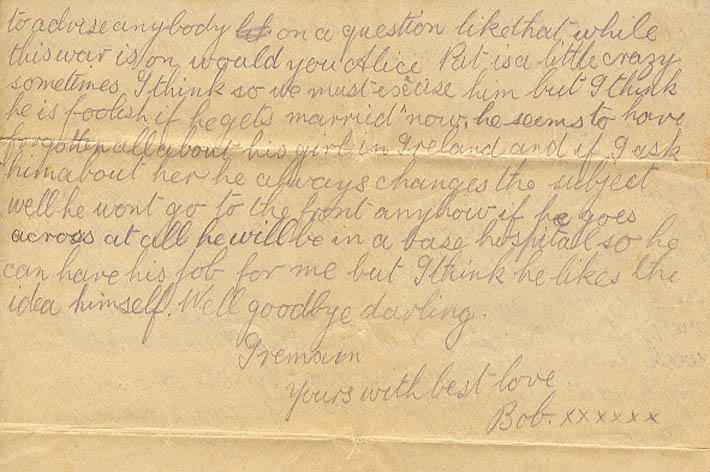 to advise anybody on a question like that while
this war is on would you Alice Pat is a little crazy
sometimes I think so we must excuse him but I think
he is foolish if he gets married now. he seems to have
forgotten all about his girl in Ireland and if I ask
him about her he always changes the subject
well he wont go to the front anyhow if he goes
across at all he will be in a base hospital so he
can have his job for me but I think he likes the
idea himself. Well goodbye darling.
I remain
Yours with best love.
Bob. xxxxxx